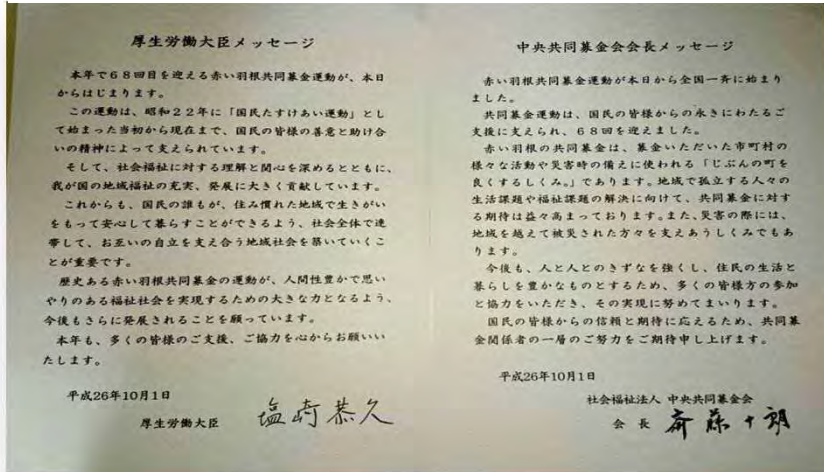 厚生労働大臣メッセージ
本年で68回目を迎える赤い羽根共同募金運動が、本日
からはじまります。
この運動は、昭和22年に「国民たすけあい運動」とし
て始まった当初から現在まで、国民の皆様の善意と助け合
いの精神によって支えられています。
そして、社会福祉に対する理解と関心を深めるとともに、
我が国の地域福祉の充実、発展に大きく貢献しています。
これからも、国民の誰もが、住み慣れた地域で生きがい
をもって安心して暮らすことができるよう、社会全体で連
帯して、お互いの自立を支え合う地域社会を築いていくこ
とが重要です。
歴史ある赤い羽根共同募金の運動が、人間性豊かで思い
やりのある福祉社会を実現するための大きな力となるよう、
今後もさらに発展されることを願っています。
本年も、多くの皆様のご支援、ご協力を心からお願いい
たします。
平成26年10月1日
厚生労働大臣 塩崎恭久
中央共同募金会会長メッセージ
赤い羽根共同募金運動が本日から全国一斉に始まり
ました。
共同募金運動は、国民の皆様からの永きにわたるご
支援に支えられ、68回を迎えました。
赤い羽根の共同募金は、募金いただいた市町村の
様々な活動や災害時の備えに使われる「じぶんの町を
良くするしくみ。」であります。地域で孤立する人々の
生活課題や福祉課題の解決に向けて、共同募金に対す
る期待は益々高まっております。また、災害の際には、
地域を越えて被災された方々を支えあうしくみでもあ
ります。
今後も、人と人とのきずなを強くし、住民の生活と
暮らしを豊かなものとするため、多くの皆様方の参加
と協力をいただき、その実現に努めてまいります。
国民の皆様からの信頼と期待に応えるため、共同募
金関係者の一層のご努力をご期待申し上げます。
平成26年10月1日
社会福祉法人 中央共同募金会
会長 斎藤十朗